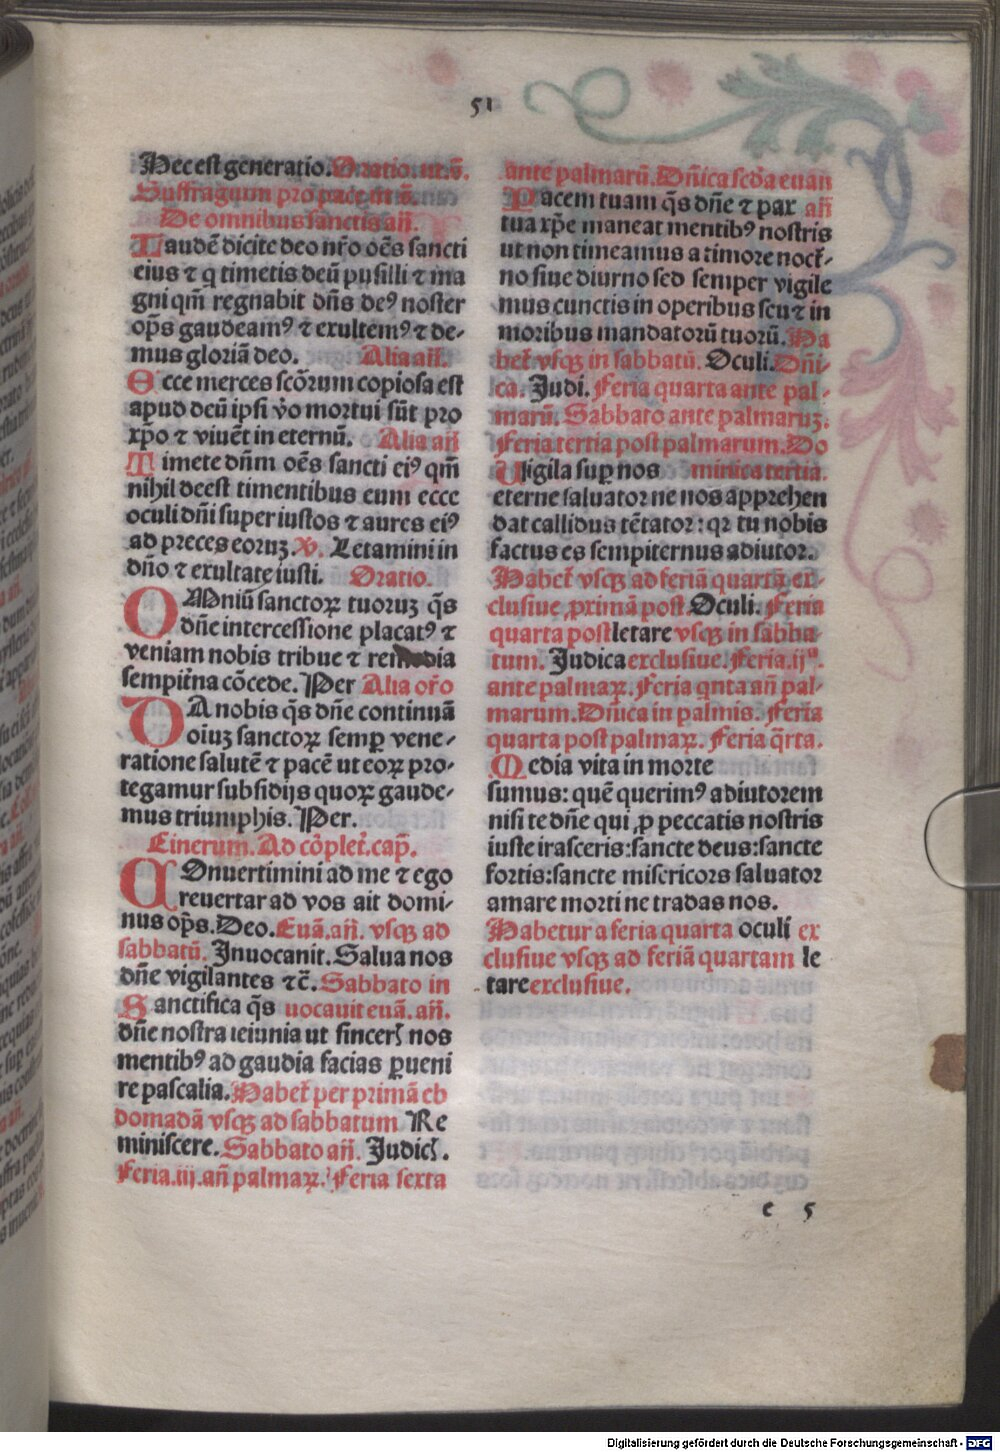 51
Hec est generatio. Oratio. ut. s̄.
Suffragium pro pace ut s̄.
De omnibus sanctis an̄.
Laudē dicite deo nr̄o oēs sancti
eius ⁊ q timetis deū pusilli ⁊ ma
gni qm̄ regnabit dn̄s deꝰ noster
op̄s gaudeamꝰ ⁊ exultemꝰ ⁊ de⸗
mus gloriā deo. Alia an̄.
Ecce merces scōrum copiosa est
apud deū ipsi v̄o mortui sūt pro
xp̄o ⁊ viuēt in eternū. Alia an̄
Timete dn̄m oēs sancti eiꝰ qm̄
nihil deest timentibus eum ecce
oculi dn̄i super iustos ⁊ aures eiꝰ
ad preces eoruꝫ. V̄. Letamini in
dn̄o ⁊ exultate iusti. Oratio.
OMniū sanctoꝝ tuoruꝫ q̄s
dn̄e intercessione placatꝰ ⁊
veniam nobis tribue ⁊ remedia
sempit̄na cōcede. Per Alia or̄o
DA nobis q̄s dn̄e continuā
oiuꝫ sanctoꝝ semꝑ vene⸗
ratione salutē ⁊ pacē ut eoꝝ pro⸗
tegamur subsidijs quoꝝ gaude⸗
mus triumphis. Per.
Cinerum. Ad cōplet̄. cap̄.
COnuertimini ad me ⁊ ego
reuertar ad vos ait domi⸗
nus op̄s. Deo. Euā. an̄. vsqꝫ ad
sabbatū. Inuocanit. Salua nos
dn̄e vigilantes ⁊c̄. Sabbato in
Sanctifica q̄s uocauit euā. an̄.
dn̄e nostra ieiunia ut sinceꝛꝭ nos
mentibꝰ ad gaudia facias ꝑueni
re pascalia. Habet̄ per primā eb
domadā vsqꝫ ad sabbatum Re
miniscere. Sabbato an̄. Judicꝭ.
Feria. iij. an̄ palmaꝝ. Feria sexta
ante palmarū. Dn̄ica scd̄a euan
Pacem tuam q̄s dn̄e ⁊ pax an̄
tua xp̄e maneat mentibꝰ nostris
ut non timeamus a timore noct̄⸗
no siue diurno sed semper vigile
mus cunctis in operibus seu ⁊ in
moribus mandatorū tuorū. Ha
bet̄ vsqꝫ in sabbatū. Oculi. Dn̄i⸗
ca. Judi. Feria quarta ante pal⸗
marū. Sabbato ante palmaruꝫ.
Feria tertia post palmarum. Do
Vigila suꝑ nos minica tertia.
eterne saluator ne nos apprehen
dat callidus tētator: qꝛ tu nobis
factus es sempiternus adiutor.
Habet̄ vsqꝫ ad feriā quartā ex⸗
clusiue ꝓximā post Oculi. Feria
quarta post letare vsqꝫ in sabba
tum. Judica exclusiue. Feria. ijᵃ.
ante palmaꝝ. Feria qnta an̄ pal⸗
marum. Dn̄ica in palmis. Feria
quarta post palmaꝝ. Feria q̄rta.
Media vita in morte
sumus: quē querimꝰ adiutorem
nisi te dn̄e qui ,ꝓ peccatis nostris
iuste irasceris: sancte deus: sancte
fortis: sancte misericors saluator
amare morti ne tradas nos.
Habetur a feria quarta oculi ex
clusiue vsqꝫ ad feriā quartam le
tare exclusiue.
e 5
Digitalisierung gefördert durch die Deutsche Forschungsgemeinschaft - DFG